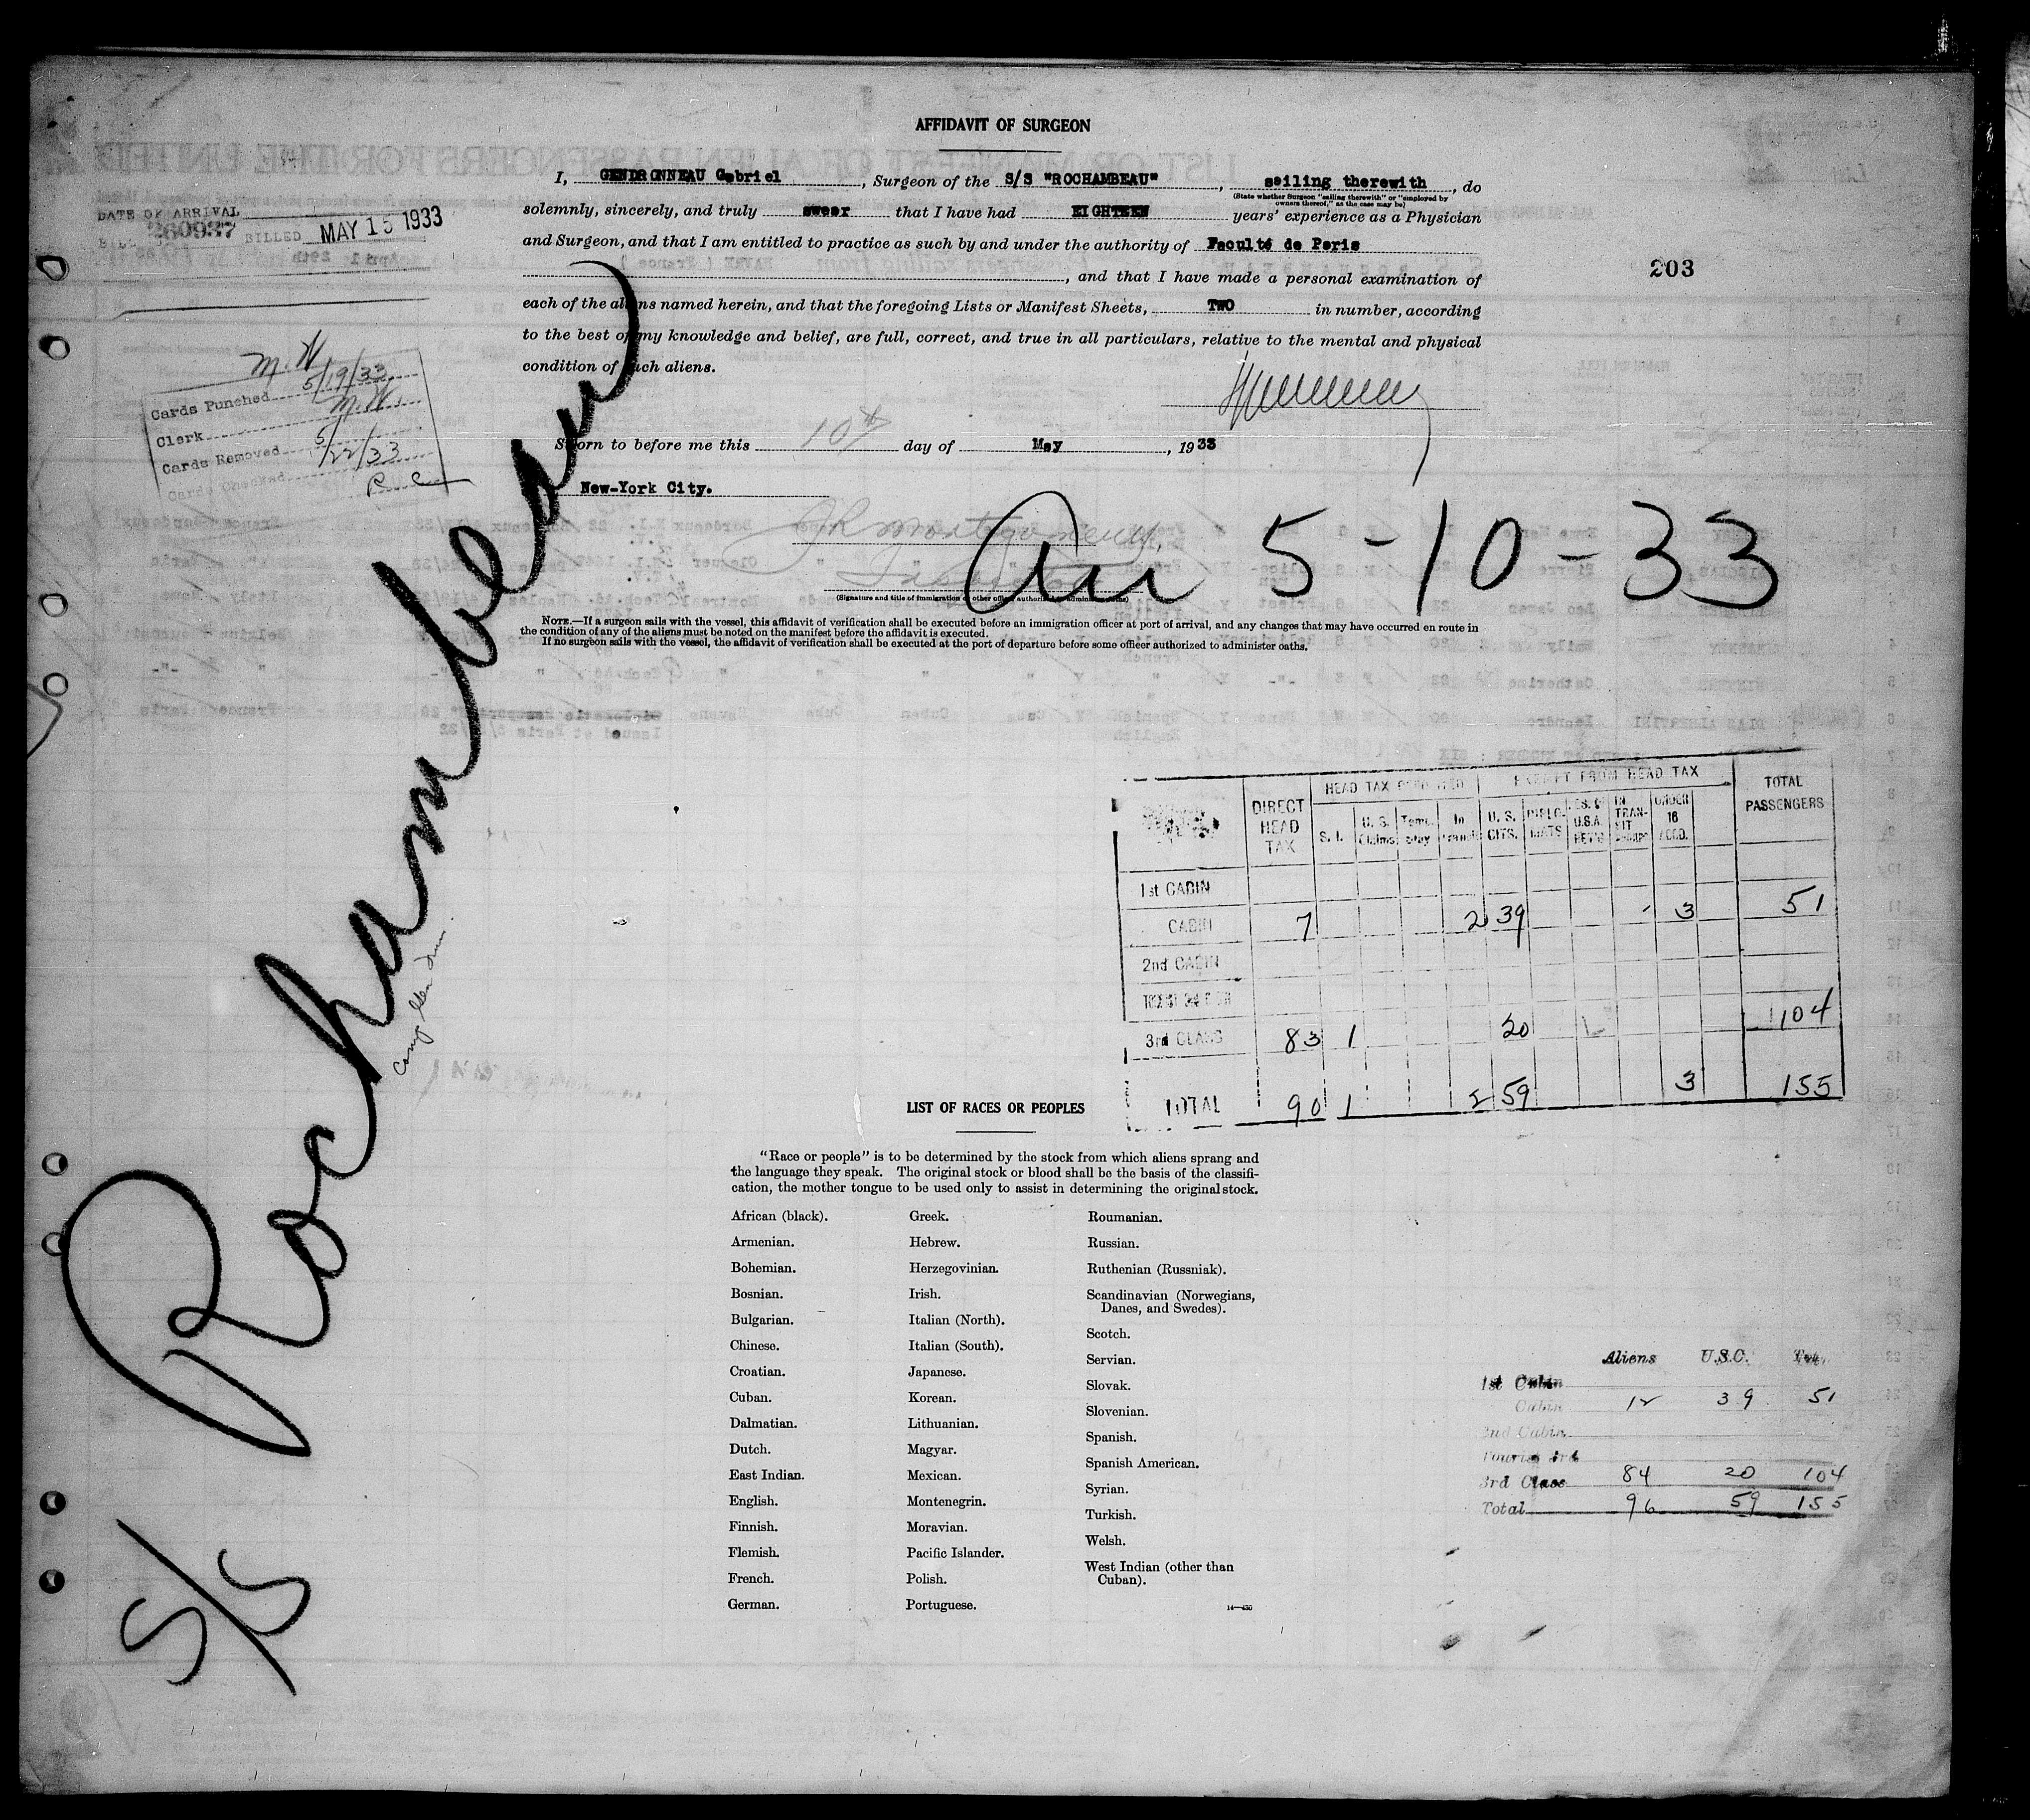 AFFIDAVIT OF SURGEON
I, GENDRONNEAU Gabriel, Surgeon of the S/S "ROCHAMBEAU", sailing therewith, do
(State whether Surgeon "sailing therewith" or "employed by owners thereof," as the case may be)
solemnly, sincerely, and truly swear that I have had EIGHTEEN years' experience as a Physician
and Surgeon, and that I am entitled to practice as such by and under the authority of Faculté de Paris
, and that I have made a personal examination of
each of the aliens named herein, and that the foregoing Lists or Manifest Sheets, TWO in number, according
to the best of my knowledge and belief, are full, correct, and true in all particulars, relative to the mental and physical
condition of such aliens.
Sworn to before me this 10th day of May, 1933
New-York City.
(Signature and title of immigration or other officer authorized to administer oaths)
NOTE.—If a surgeon sails with the vessel, this affidavit of verification shall be executed before an immigration officer at port of arrival, and any changes that may have occurred en route in
the condition of any of the aliens must be noted on the manifest before the affidavit is executed.
If no surgeon sails with the vessel, the affidavit of verification shall be executed at the port of departure before some officer authorized to administer oaths.
DATE OF ARRIVAL
260937 BILLED MAY 15 1933
203
M. W.
Cards Punched 5/19/33
Clerk M. W.
Cards Removed 5/22/33
Cards Checked R C
5-10-33
S/S Rochambeau
DIRECT HEAD TAX
HEAD TAX
EXEMPT FROM HEAD TAX
TOTAL PASSENGERS
S. I. U. S. Claims Temp. stay In transit U. S. CITS. DIPLOMATS RES. OF U.S.A. RET'G IN TRANSIT UNDER 16 ACCD.
1st CABIN
CABIN 7 2 39 3 51
2nd CABIN
3rd CLASS 83 1 20 104
TOTAL 90 1 2 59 3 155
LIST OF RACES OR PEOPLES
"Race or people" is to be determined by the stock from which aliens sprang and
the language they speak. The original stock or blood shall be the basis of the classifi-
cation, the mother tongue to be used only to assist in determining the original stock.
African (black).
Armenian.
Bohemian.
Bosnian.
Bulgarian.
Chinese.
Croatian.
Cuban.
Dalmatian.
Dutch.
East Indian.
English.
Finnish.
Flemish.
French.
German.
Greek.
Hebrew.
Herzegovinian.
Irish.
Italian (North).
Italian (South).
Japanese.
Korean.
Lithuanian.
Magyar.
Mexican.
Montenegrin.
Moravian.
Pacific Islander.
Polish.
Portuguese.
Roumanian.
Russian.
Ruthenian (Russniak).
Scandinavian (Norwegians,
Danes, and Swedes).
Scotch.
Servian.
Slovak.
Slovenian.
Spanish.
Spanish American.
Syrian.
Turkish.
Welsh.
West Indian (other than
Cuban).
14—430
Aliens U.S.C.
1st Cabin
Cabin 12 39 51
2nd Cabin
Tourist 3rd
3rd Class 84 20 104
Total 96 59 155